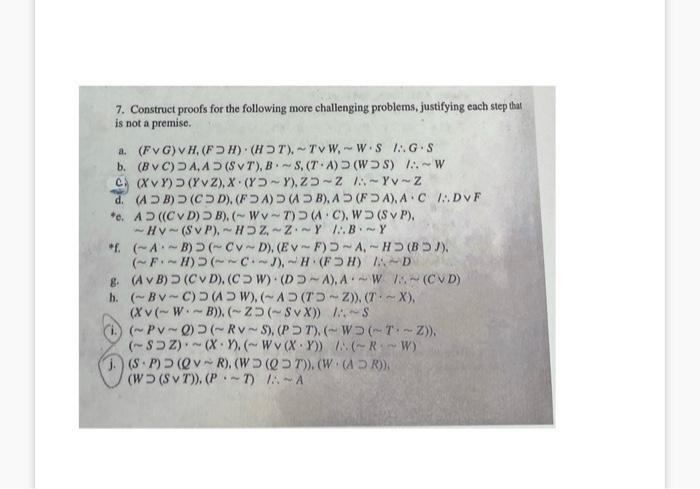 7. Construct proofs for the following more challenging problems, justifying each step that
is not a premise.
a. (F∨G)∨H, (F⊃H)·(H⊃T), ~T∨W, ~W·S /∴G·S
b. (B∨C)⊃A, A⊃(S∨T), B·~S, (T·A)⊃(W⊃S) /∴~W
c. (X∨Y)⊃(Y∨Z), X·(Y⊃~Y), Z⊃~Z /∴~Y∨~Z
d. (A⊃B)⊃(C⊃D), (F⊃A)⊃(A⊃B), A⊃(F⊃A), A·C /∴D∨F
*e. A⊃((C∨D)⊃B), (~W∨~T)⊃(A·C), W⊃(S∨P),
~H∨~(S∨P), ~H⊃Z, ~Z·~Y /∴B·~Y
*f. (~A·~B)⊃(~C∨~D), (E∨~F)⊃~A, ~H⊃(B⊃J),
(~F·~H)⊃(~~C·~J), ~H·(F⊃H) /∴~D
g. (A∨B)⊃(C∨D), (C⊃W)·(D⊃~A), A·~W /∴~(C∨D)
h. (~B∨~C)⊃(A⊃W), (~A⊃(T⊃~Z)), (T·~X),
(X∨(~W·~B)), (~Z⊃(~S∨X)) /∴~S
i. (~P∨~Q)⊃(~R∨~S), (P⊃T), (~W⊃(~T·~Z)),
(~S⊃Z)·~(X·Y), (~W∨(X·Y)) /∴(~R·~W)
j. (S·P)⊃(Q∨~R), (W⊃(Q⊃T)), (W·(A⊃R)),
(W⊃(S∨T)), (P·~T) /∴~A